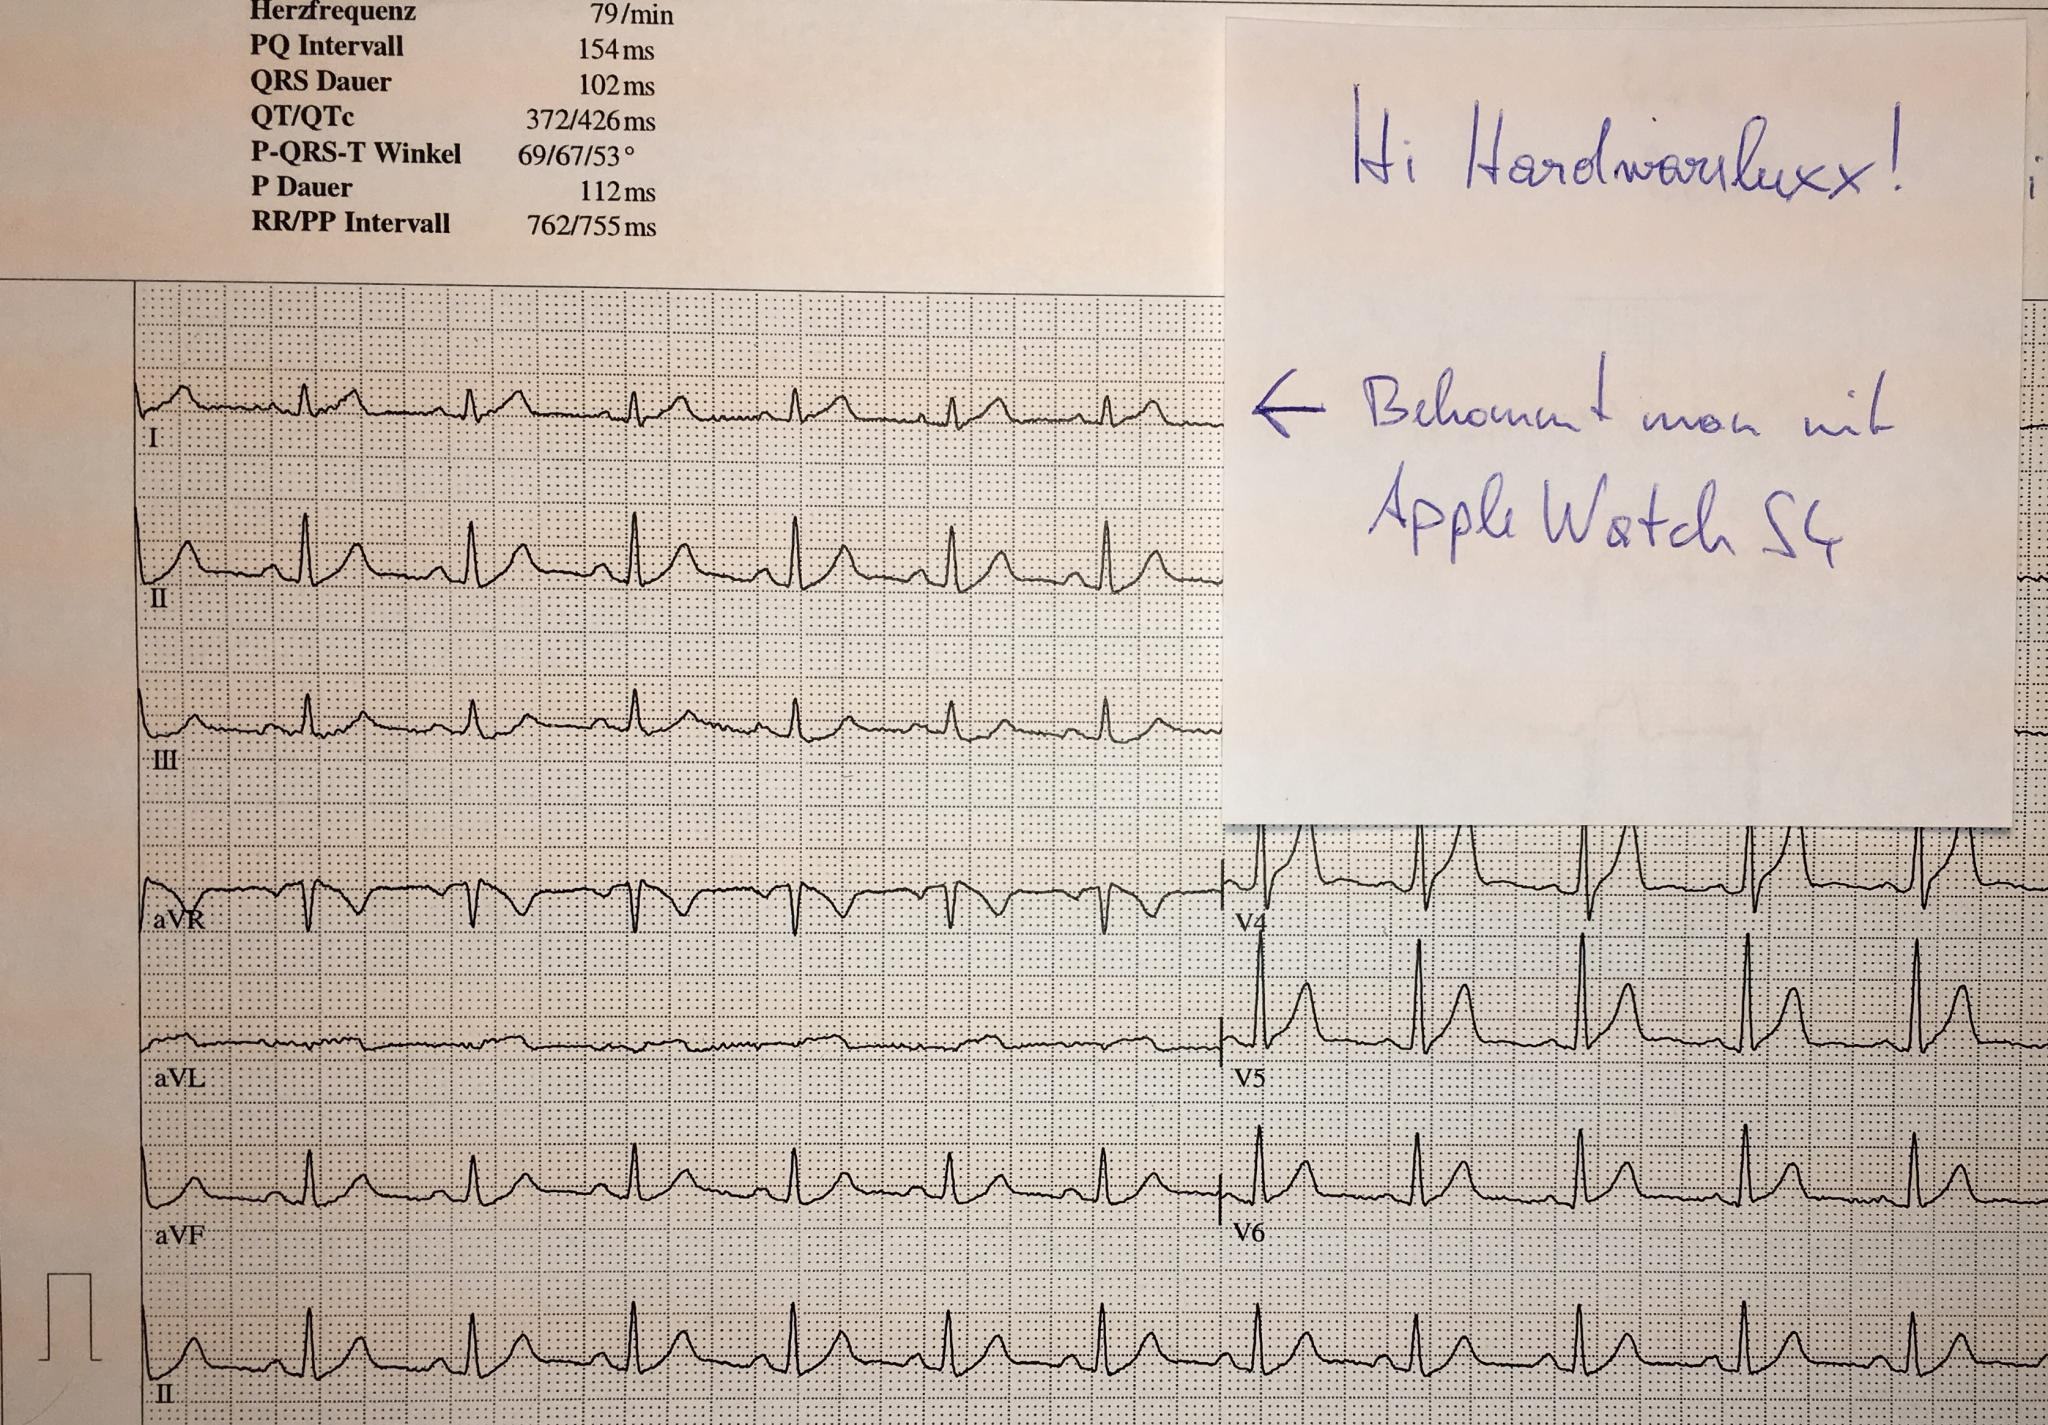 Herzfrequenz 79/min
PQ Intervall 154 ms
QRS Dauer 102 ms
QT/QTc 372/426 ms
P-QRS-T Winkel 69/67/53°
P Dauer 112 ms
RR/PP Intervall 762/755 ms
Hi Hardwareluxx!
← Bekommt man mit
Apple Watch S4
I
II
III
aVR
V4
aVL
V5
aVF
V6
II